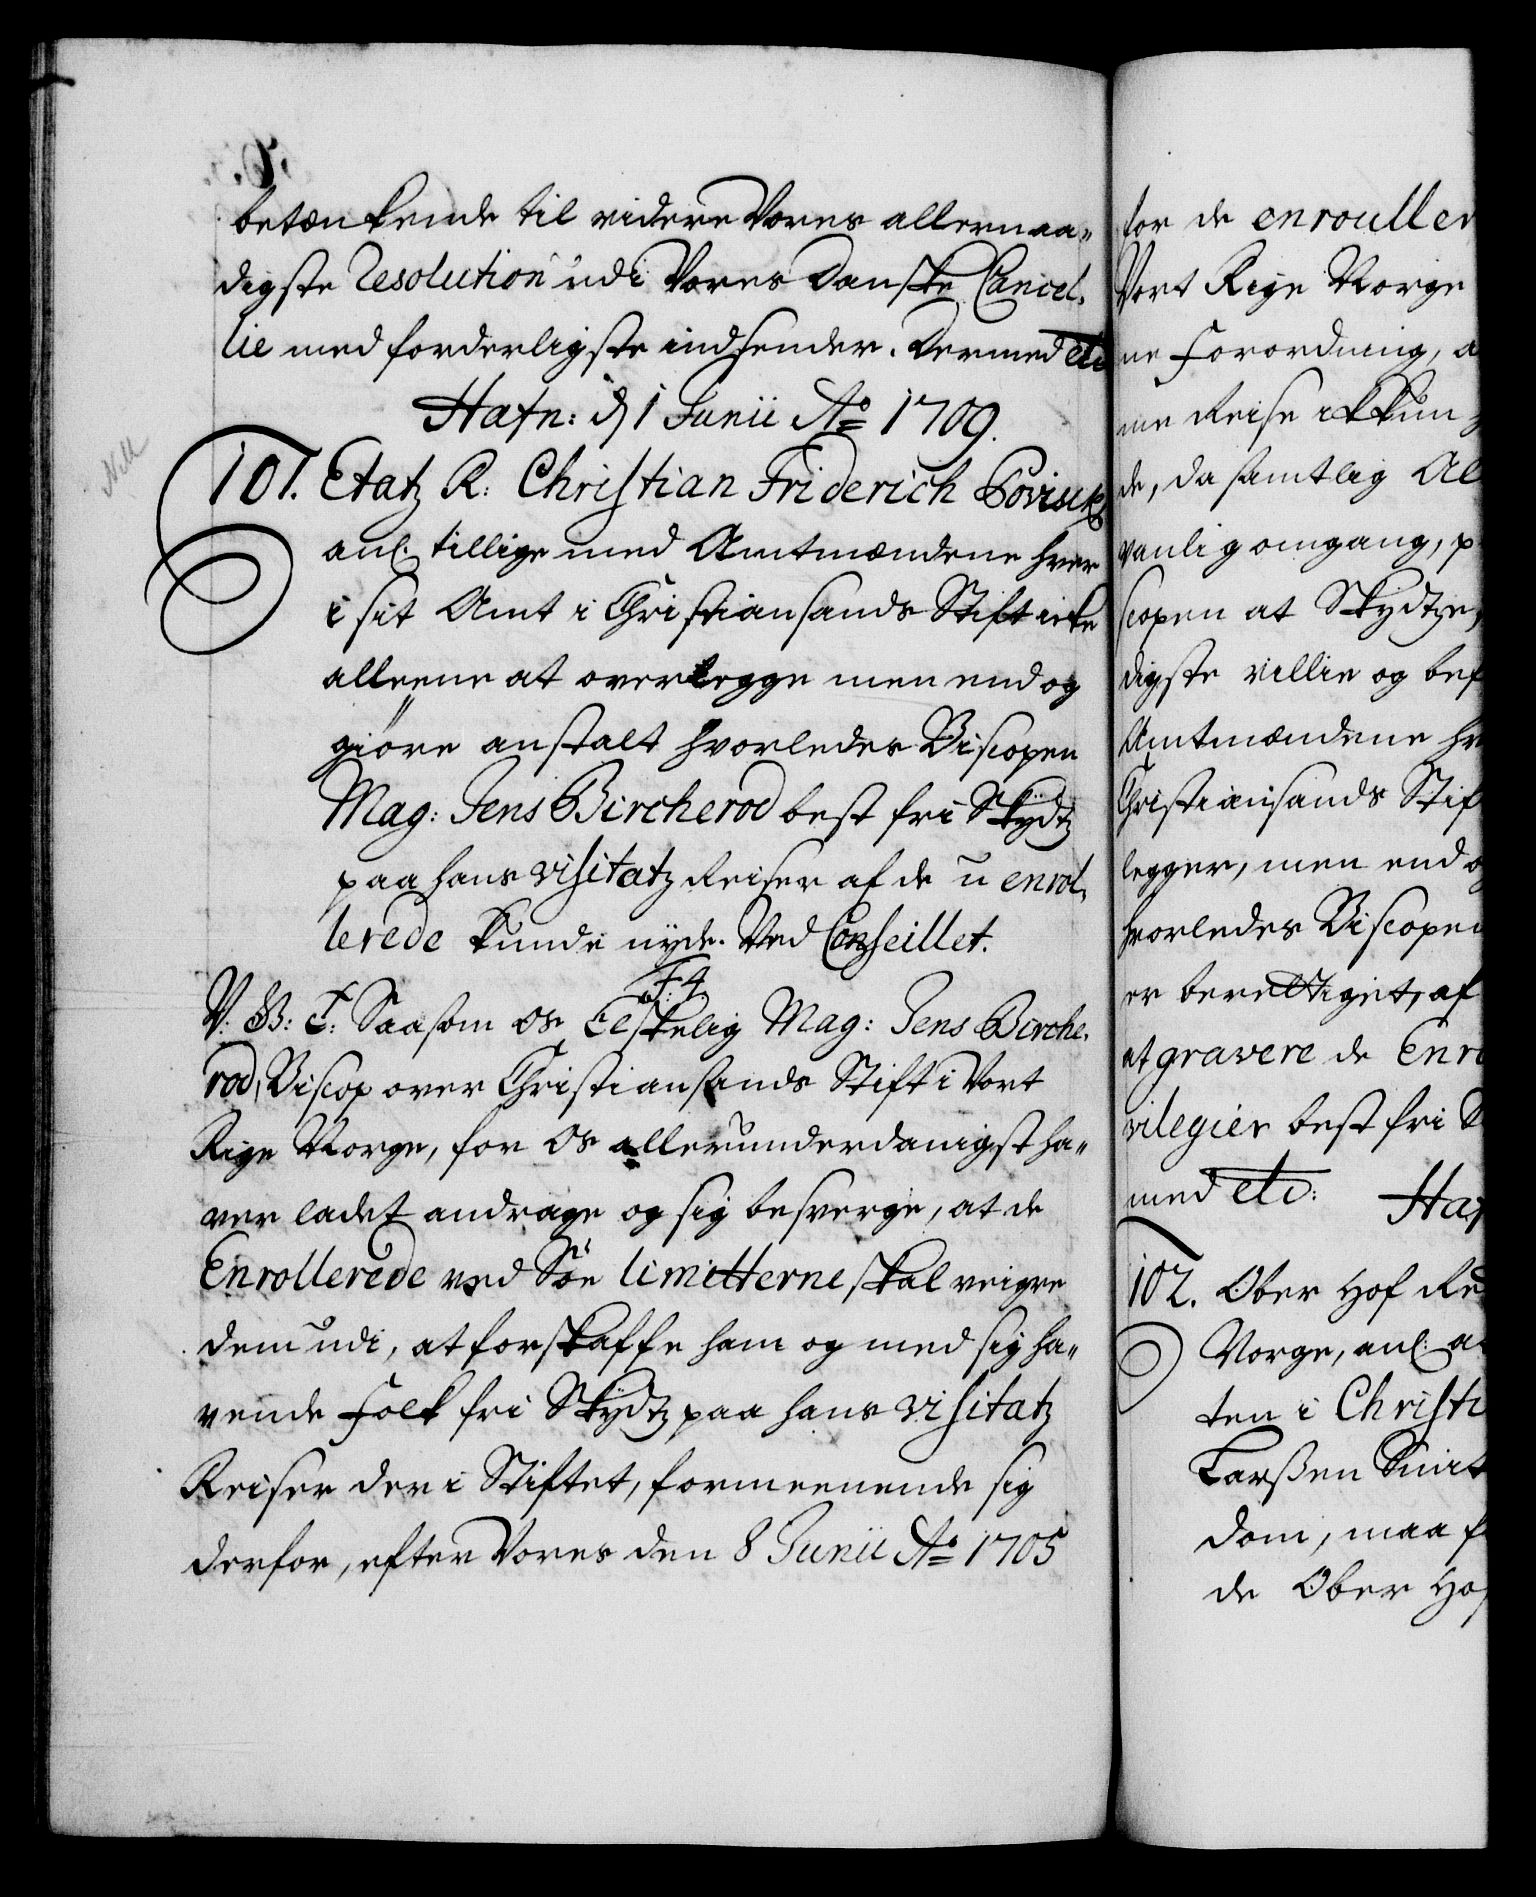 betænkende til videre Vores allernaa-
digste Resolution udi Vores Danske Cancel-
lie med forderligste indsender. Dermed etc
Hafn: d 1 Junii Ao 1709.
101. Etatz R: Christian Friderich
anl. tillige med Amtmændene hver
i sit Amt i Christiansands Stift icke
alleene at overlegge men end og
giöre anstalt hvorledes Biscopen
Mag: Jens Bircherod best fri Skÿdtz
paa hans visitatz Reiser af de u enrol-
lerede kunde nÿde. Ved Conseillet.
F4
V: G: T: Saasom os Elskelig Mag: Jens Birche-
rod, Biscop over Christiansands Stift i Vort
Rige Norge, for Os allerunderdanigst ha-
ver ladet andrage og sig besverge, at de
Enrollerede ved Söe limitterne skal veigre
dem udi, at forskaffe ham og med sig ha-
vende Folk fri Skÿdtz paa hans visitatz
Reiser der i Stiftet, formeenende sig
derfor, efter Vores den 8 Junii Ao 1705
for de enrouller
Vort Rige Norge
ne Forordning, a
me Reise
de, da samtlig Al
vanlig omgang, p
scopen at Skÿdtze,
digste villie og bef
Amtmændene hv
Christiansands Stif
legger, men end o
hvorledes Biscopen
er berettiget, af
at gravere de Enro
vilegier best fri S
med etc: Haf
102. Ober Hof Re
Norge, anl: a
ten i Christi
Larßen
dom, maa f
de Ober Hof